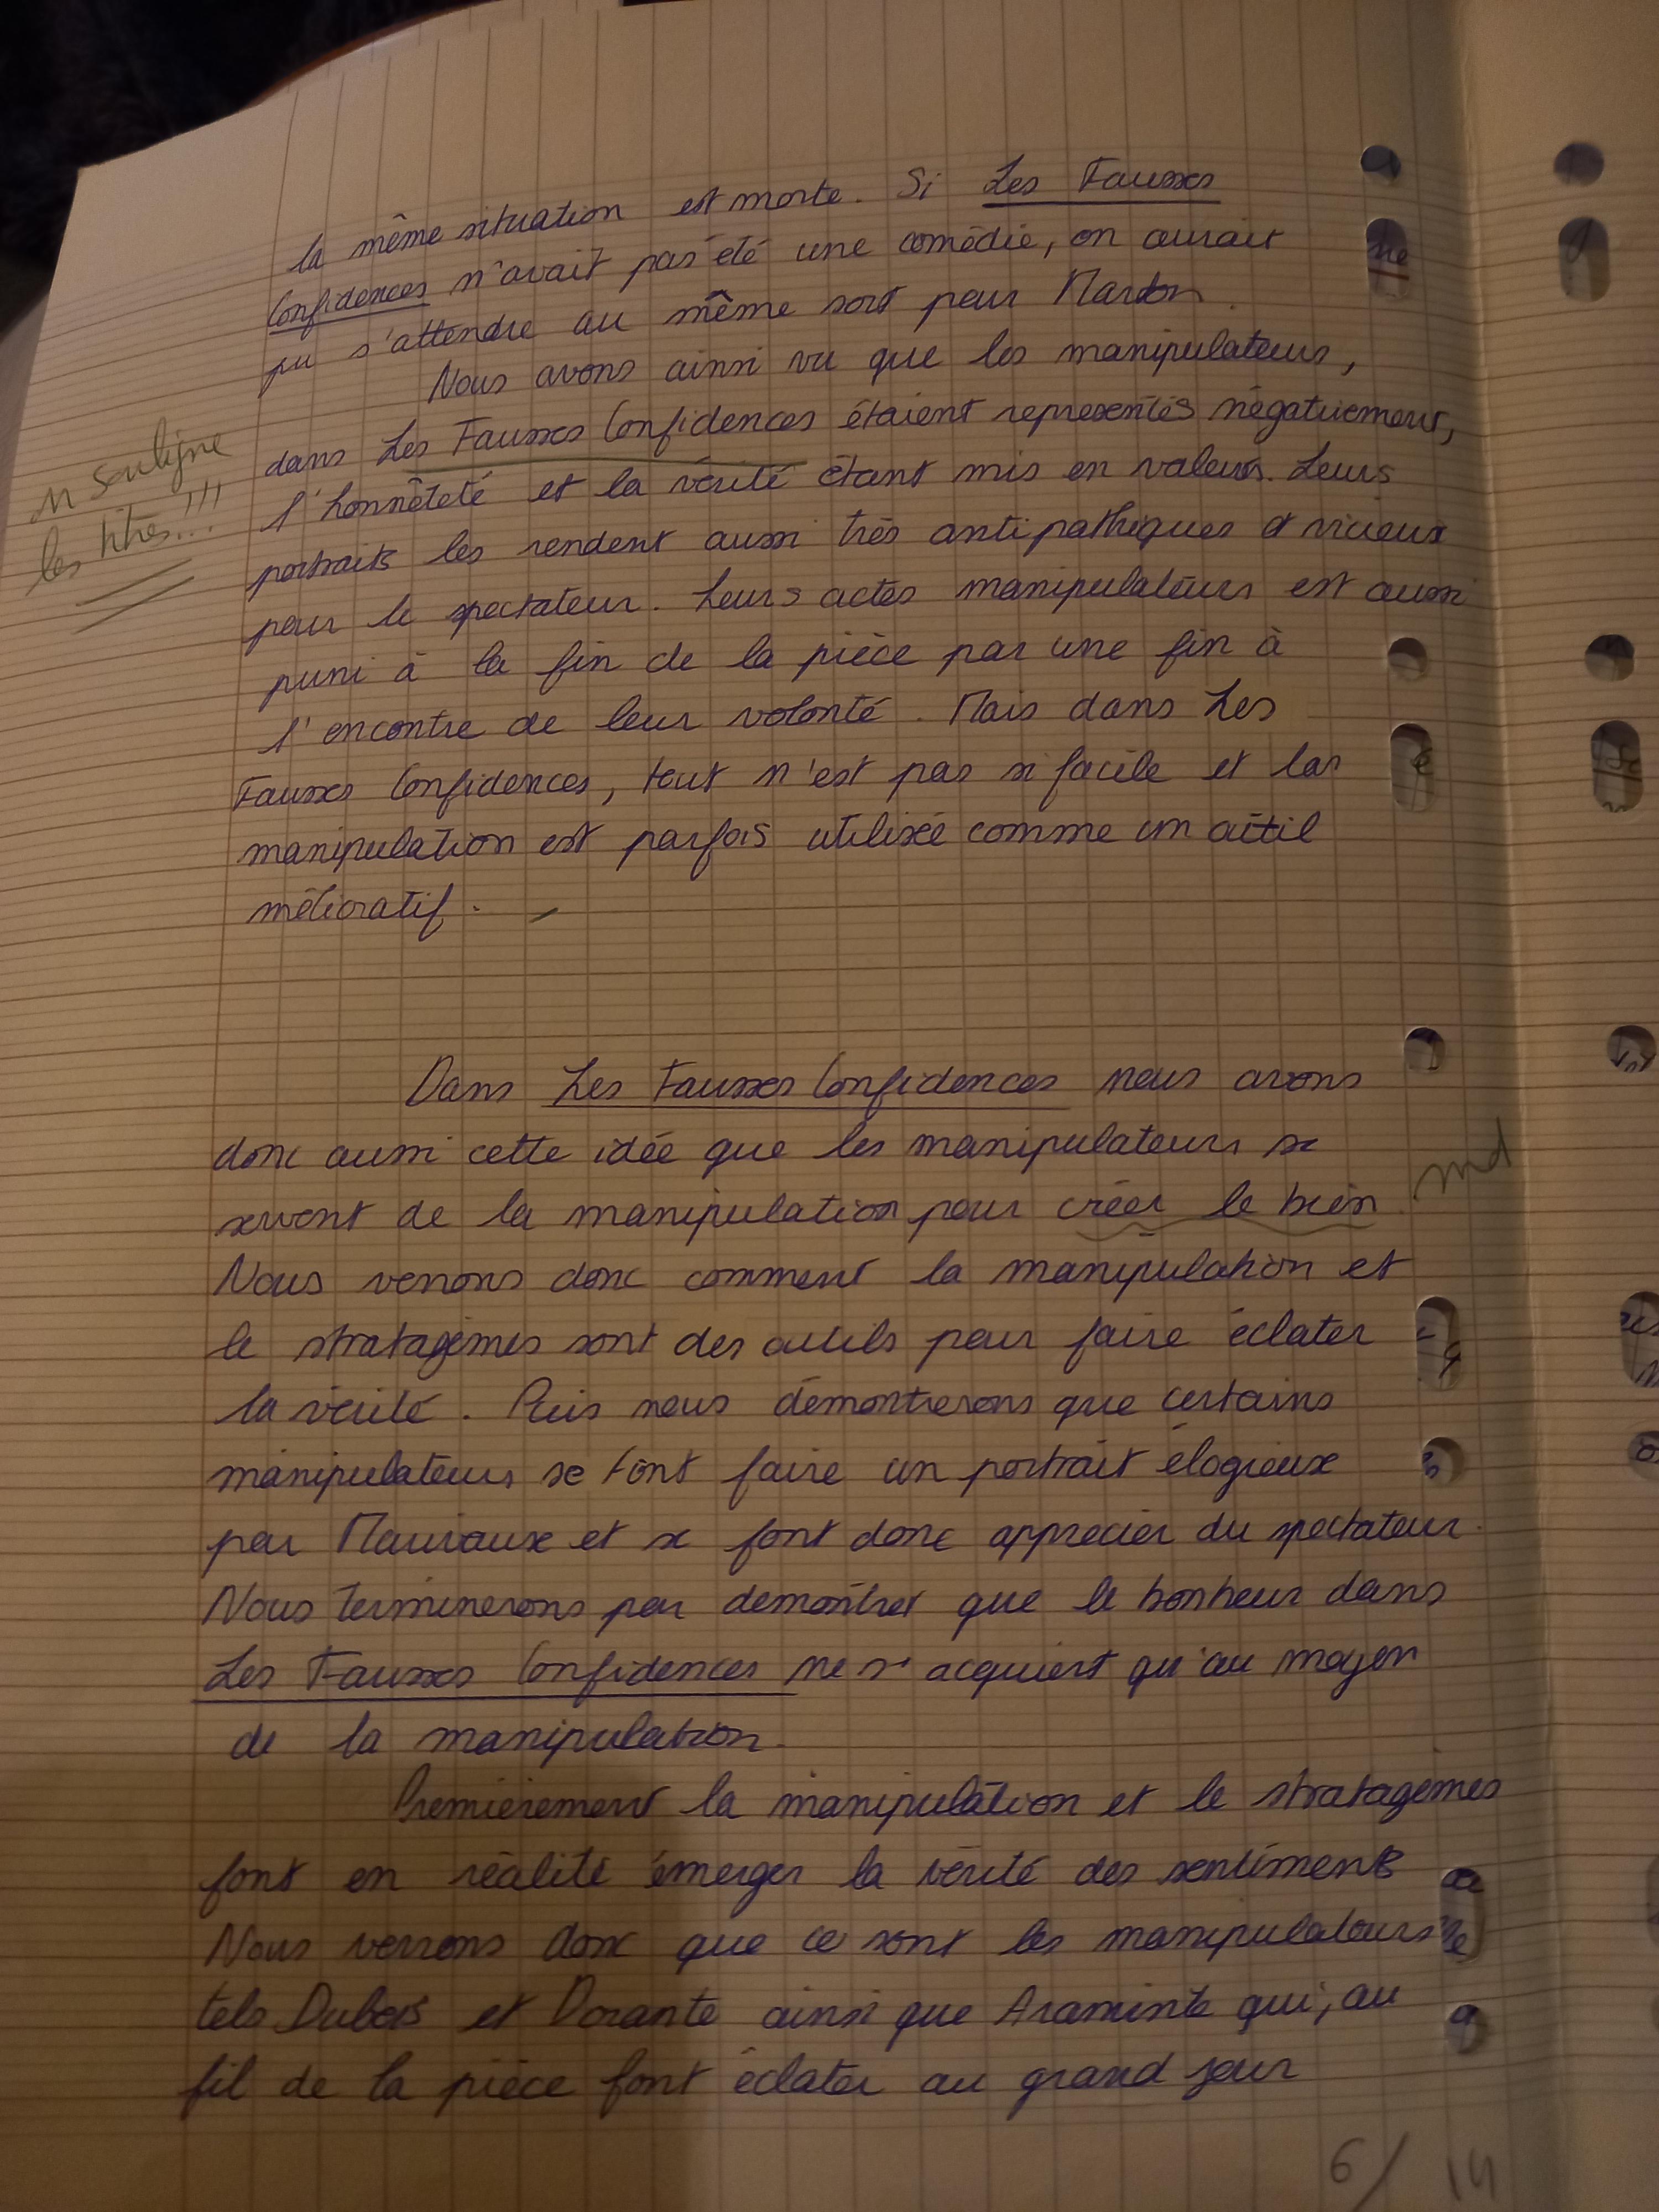 la même situation est morte. Si Les Fausses
Confidences n'avait pas été une comédie, on aurait
pu s'attendre au même sort pour Marton.
Nous avons ainsi vu que les manipulateurs,
dans Les Fausses Confidences étaient représentés négativement,
on souligne
les titres!!!
l'honnêteté et la vérité étant mis en valeurs. Leurs
portraits les rendent aussi très antipathiques et vicieux
pour le spectateur. Leurs actes manipulateurs est aussi
puni à la fin de la pièce par une fin à
l'encontre de leur volonté. Mais dans Les
Fausses Confidences, tout n'est pas si facile et la
manipulation est parfois utilisée comme un outil
mélioratif.
Dans Les Fausses Confidences nous avons
donc aussi cette idée que les manipulateurs se
servent de la manipulation pour créer le bien. md
Nous verrons donc comment la manipulation et
le stratagèmes sont des outils pour faire éclater
la vérité. Puis nous démontrerons que certains
manipulateurs se font faire un portrait élogieux
par Marivaux et se font donc apprécier du spectateur.
Nous terminerons par démontrer que le bonheur dans
Les Fausses Confidences ne s'acquiert qu'au moyen
de la manipulation.
Premièrement la manipulation et le stratagèmes
font en réalité émerger la vérité des sentiments
Nous verrons donc que ce sont les manipulateurs
tels Dubois et Dorante ainsi que Araminte qui, au
fil de la pièce font éclater au grand jour
6/14